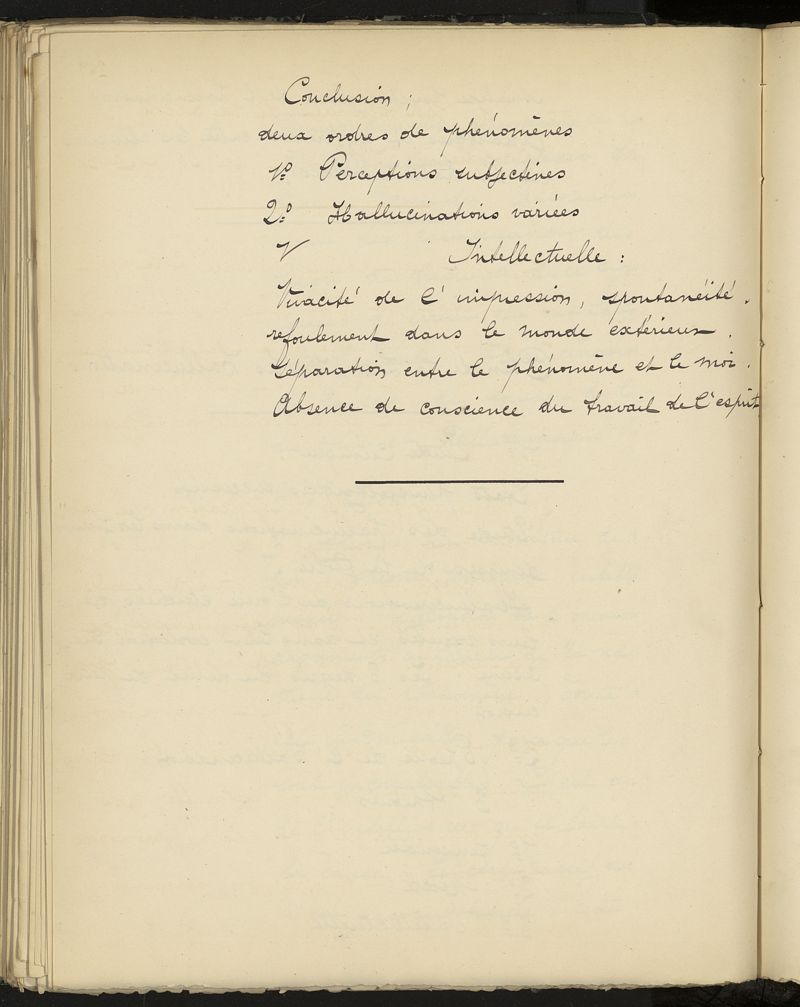 Conclusion ;
deux ordres de phénomènes
1º Perceptions subjectives
2º Hallucinations variées
V Intellectuelle :
Vivacité de l'impression, spontanéité.
refoulement dans le monde extérieur.
séparation entre le phénomène et le moi.
Absence de conscience du travail de l'esprit